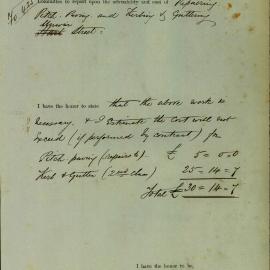 Committee to report upon the advisability and cost of Repairing
Pitch Paving and Kerbing & Guttering
Street.
I have the honor to state that the above work is
necessary, & I estimate the cost will not
exceed (if performed by contract) for
Pitch paving (repairs to) £ 5=0.0
Kerb & Gutter (2nd class) 25=14=7
Total £30=14=7
I have the honor to be,